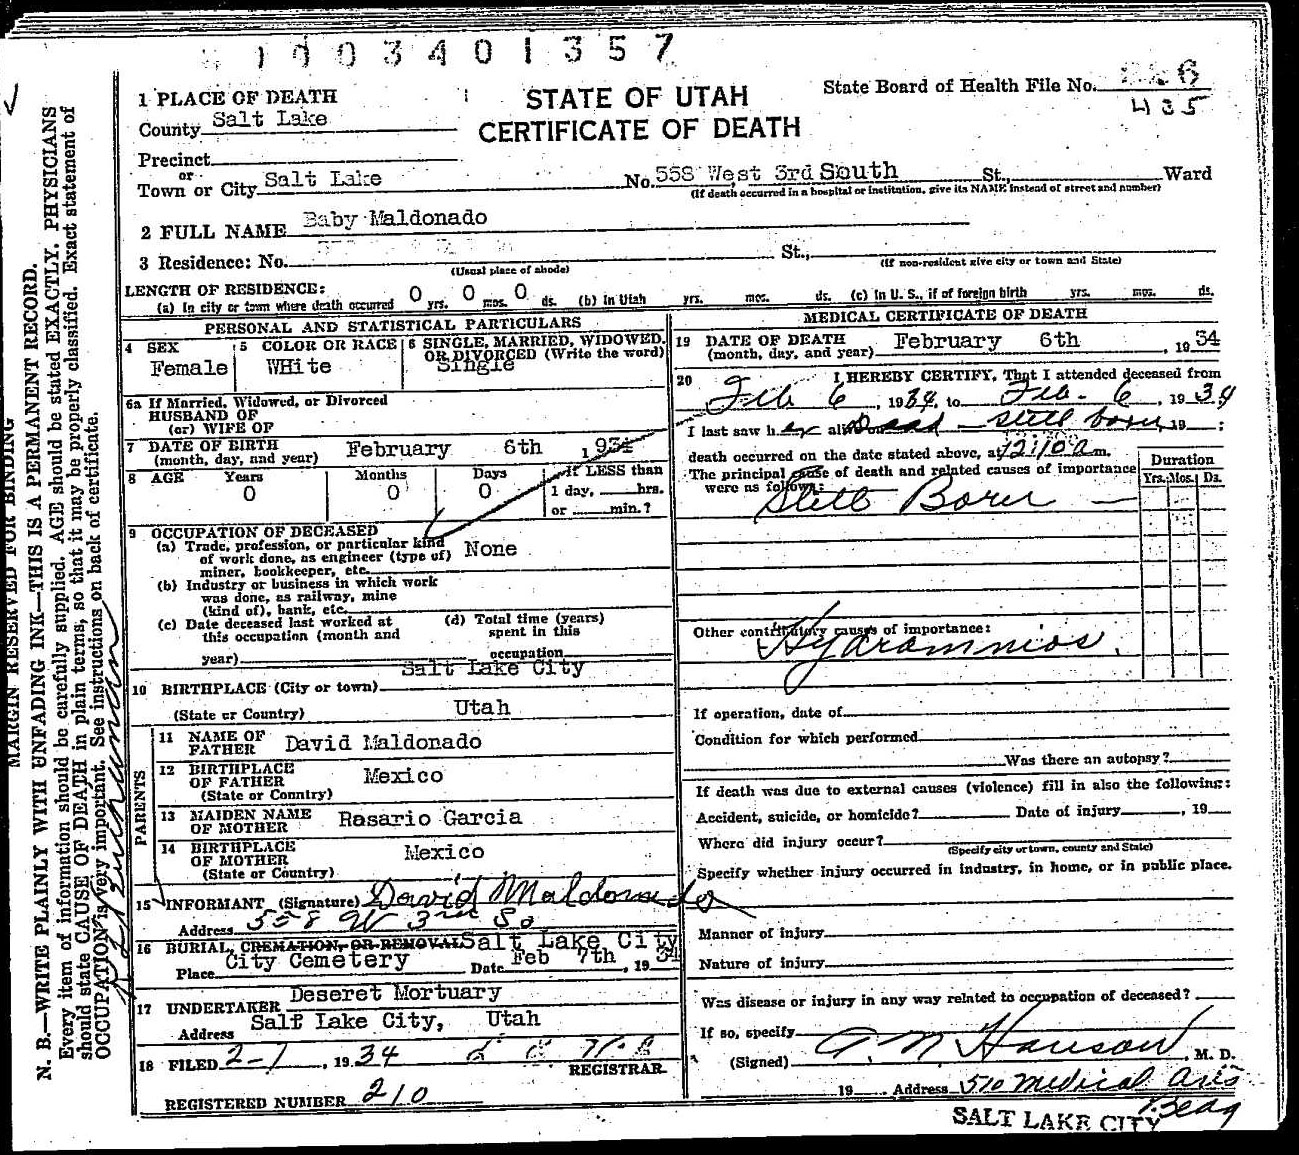 1003401357
State Board of Health File No. 6
435
STATE OF UTAH
CERTIFICATE OF DEATH
1 PLACE OF DEATH
County Salt Lake
Precinct
or
Town or City Salt Lake No. 558 West 3rd South St., Ward
(If death occurred in a hospital or institution, give its NAME instead of street and number)
2 FULL NAME Baby Maldonado
3 Residence: No. St.,
(Usual place of abode) (If non-resident give city or town and State)
LENGTH OF RESIDENCE:
(a) In city or town where death occurred 0 yrs. 0 mos. 0 ds. (b) In Utah yrs. mos. ds. (c) In U. S., if of foreign birth yrs. mos. ds.
PERSONAL AND STATISTICAL PARTICULARS
4 SEX Female
5 COLOR OR RACE WHite
6 SINGLE, MARRIED, WIDOWED, OR DIVORCED (Write the word) Single
6a If Married, Widowed, or Divorced
HUSBAND OF
(or) WIFE OF
7 DATE OF BIRTH (month, day, and year) February 6th 1934
8 AGE Years 0 Months 0 Days 0 If LESS than
1 day, hrs.
or min.?
9 OCCUPATION OF DECEASED
(a) Trade, profession, or particular kind
of work done, as engineer (type of)
miner, bookkeeper, etc. None
(b) Industry or business in which work
was done, as railway, mine
(kind of), bank, etc.
(c) Date deceased last worked at
this occupation (month and
year)
(d) Total time (years)
spent in this
occupation
10 BIRTHPLACE (City or town) Salt Lake City
(State or Country) Utah
PARENTS
11 NAME OF FATHER David Maldonado
12 BIRTHPLACE OF FATHER (State or Country) Mexico
13 MAIDEN NAME OF MOTHER Rosario Garcia
14 BIRTHPLACE OF MOTHER (State or Country) Mexico
15 INFORMANT (Signature) David Maldonado
Address 558 W 3rd So
16 BURIAL, CREMATION, OR REMOVAL Salt Lake City
Place City Cemetery Date Feb 7th, 1934
17 UNDERTAKER Deseret Mortuary
Address Salt Lake City, Utah
18 FILED 2-7, 1934
REGISTRAR
REGISTERED NUMBER 210
MEDICAL CERTIFICATE OF DEATH
19 DATE OF DEATH (month, day, and year) February 6th, 1934
20 I HEREBY CERTIFY, That I attended deceased from
Feb 6, 1934, to Feb. 6, 1934
I last saw her alive on Dead - still born, 19 ;
death occurred on the date stated above, at 12:10 a m.
The principal cause of death and related causes of importance
were as follows:
Duration
Yrs. Mos. Ds.
Still Born
Other contributory causes of importance:
Hydramnios.
If operation, date of
Condition for which performed
Was there an autopsy?
If death was due to external causes (violence) fill in also the following:
Accident, suicide, or homicide? Date of injury , 19
Where did injury occur?
(Specify city or town, county and State)
Specify whether injury occurred in industry, in home, or in public place.
Manner of injury
Nature of injury
Was disease or injury in any way related to occupation of deceased?
If so, specify
(Signed) A. M. Hanson, M. D.
19 Address 510 Medical Arts
Bldg
SALT LAKE CITY
MARGIN RESERVED FOR BINDING
N. B.—WRITE PLAINLY WITH UNFADING INK—THIS IS A PERMANENT RECORD.
Every item of information should be carefully supplied. AGE should be stated EXACTLY. PHYSICIANS
should state CAUSE OF DEATH in plain terms, so that it may be properly classified. Exact statement of
OCCUPATION is very important. See instructions on back of certificate.